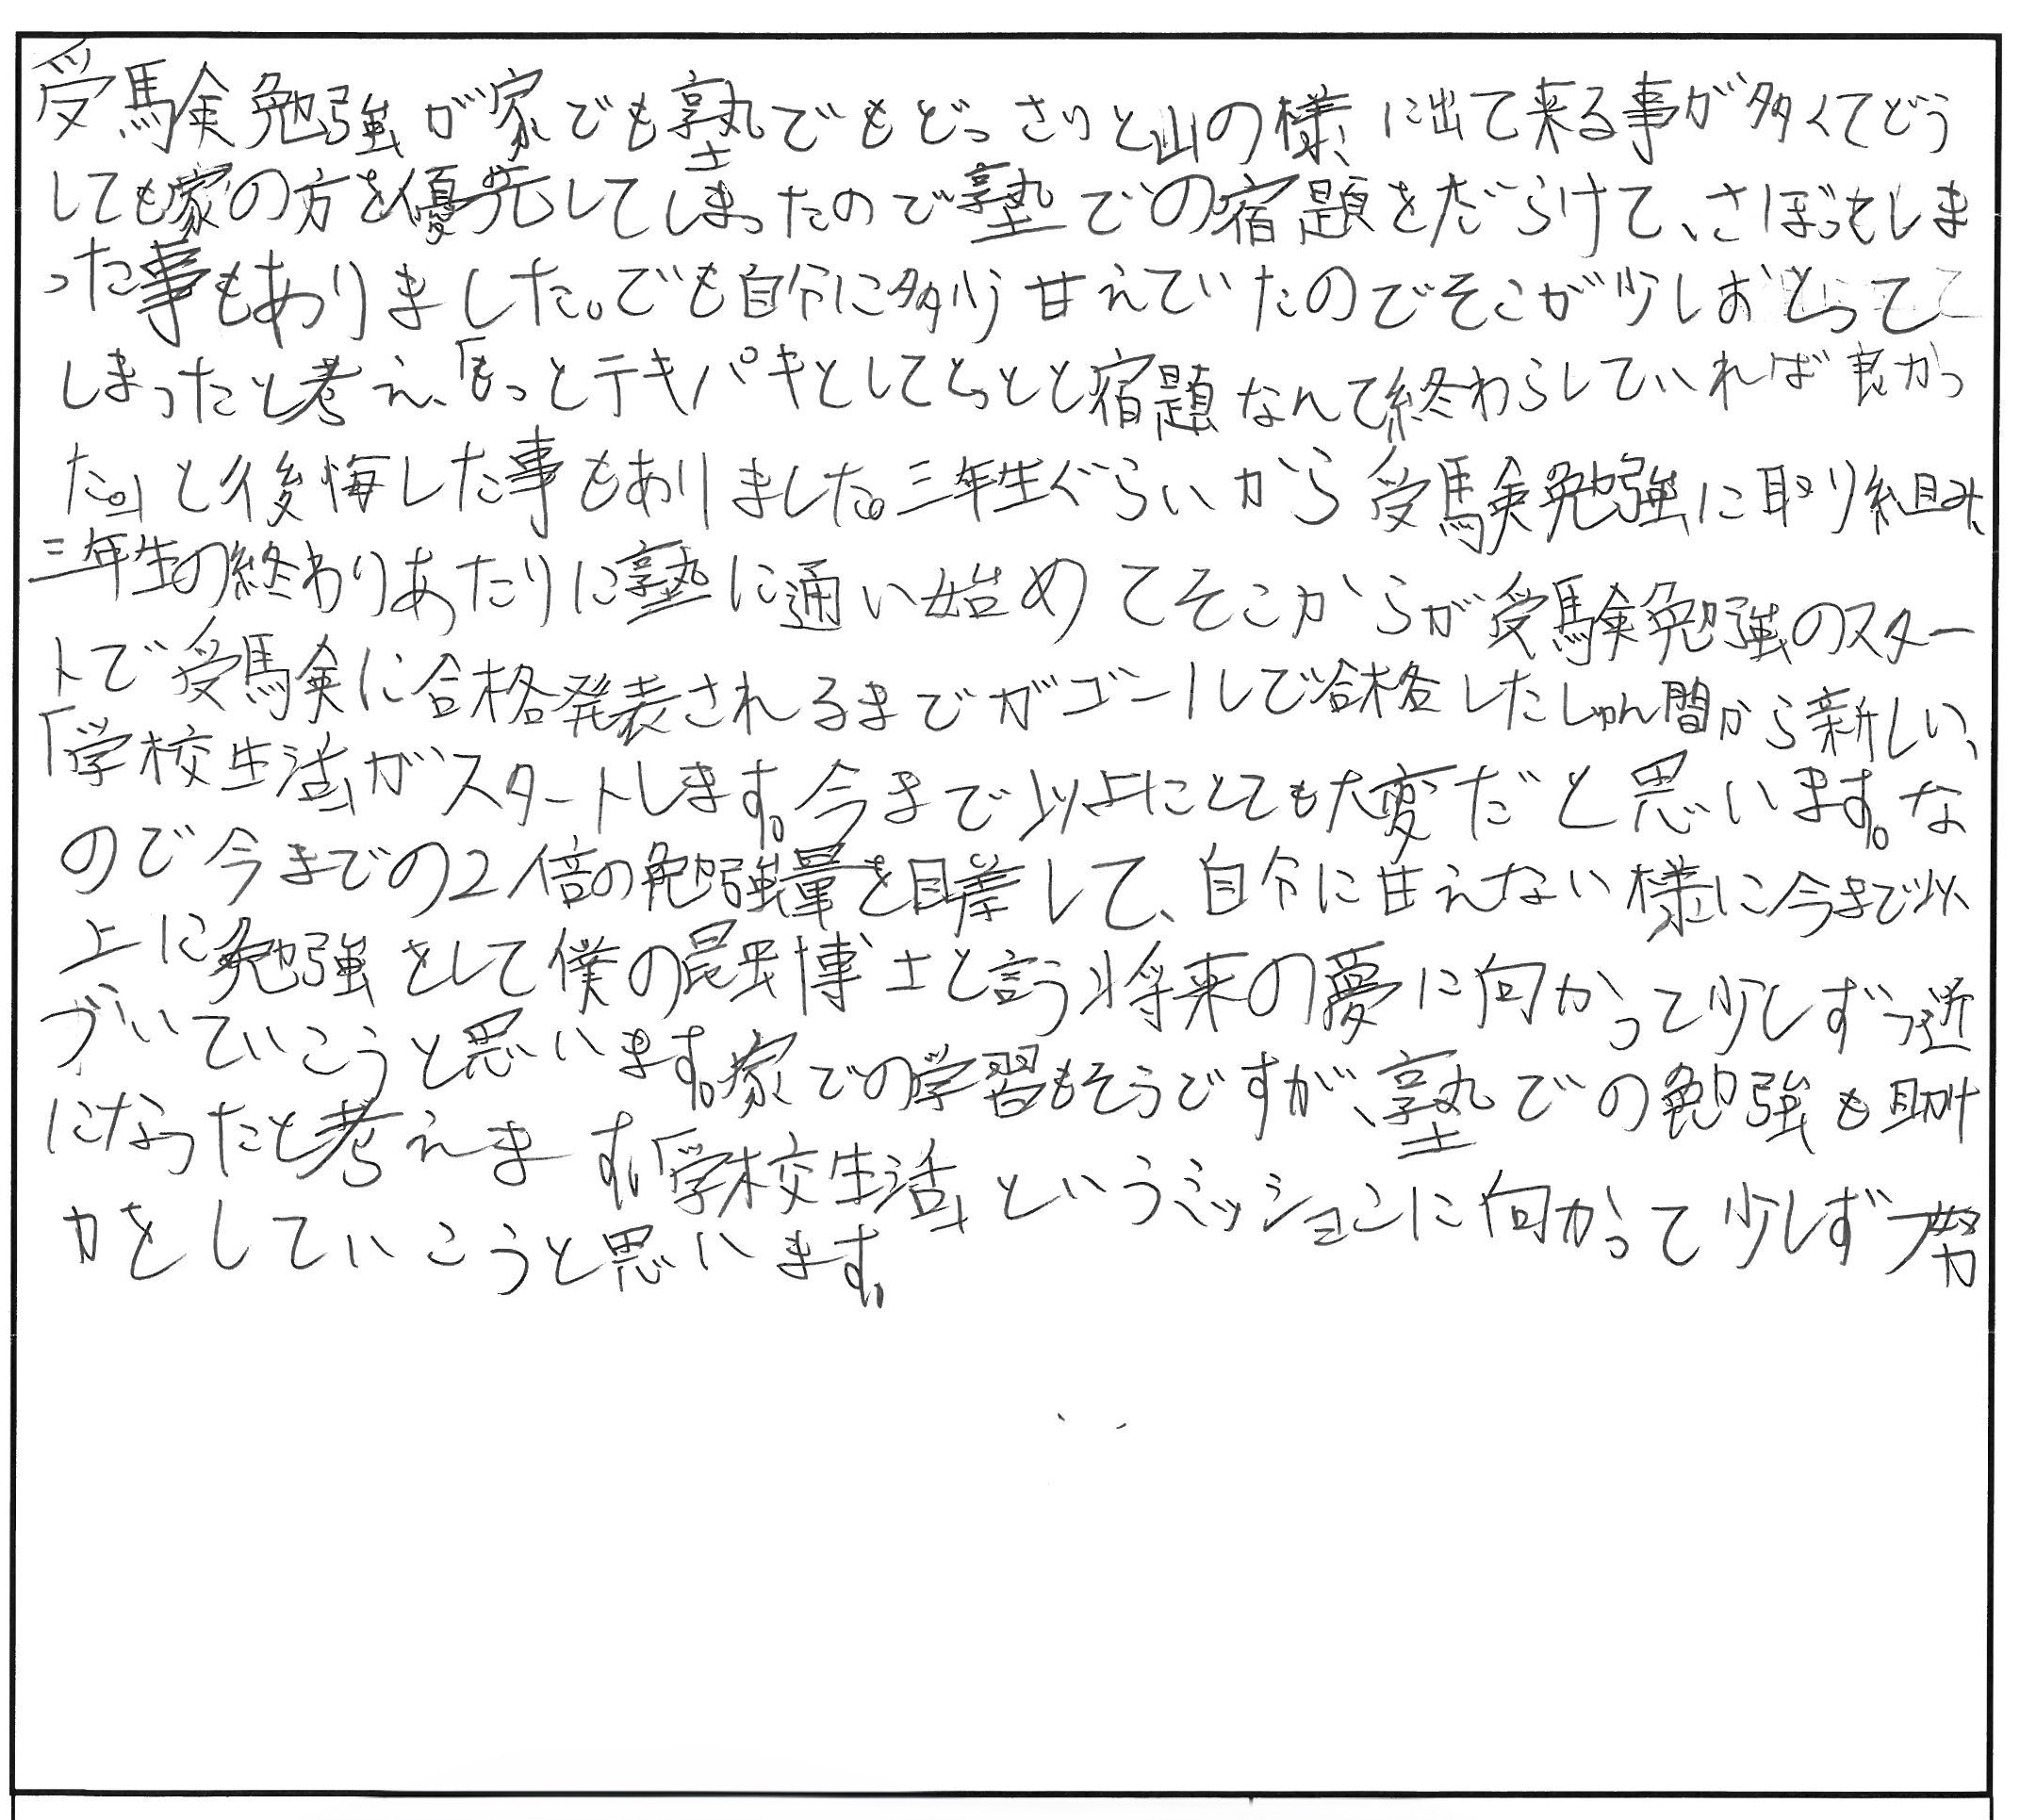 受験勉強が家でも塾でもどっさりと山の様に出て来る事が多くてどう
しても家の方を優先してしまったので塾での宿題をだらけて、さぼってしま
った事もありました。でも自分に多少甘えていたのでそこが少しおとって
しまったと考え、「もっとテキパキとしてとっとと宿題なんて終わらしていれば良かっ
た。」と後悔した事もありました。三年生ぐらいから受験勉強に取り組み、
三年生の終わりあたりに塾に通い始めてそこからが受験勉強のスター
トで受験に合格発表されるまでがゴールで合格したしゅん間から新しい、
「学校生活」がスタートします。今まで以上にとても大変だと思います。な
ので今までの2倍の勉強量を目差して、自分に甘えない様に今まで以
上に勉強をして僕の昆虫博士と言う将来の夢に向かって少しずつ近
づいていこうと思います。家での学習もそうですが、塾での勉強も助け
になったと考えます。「学校生活」というミッションに向かって少しずつ努
力をしていこうと思います。